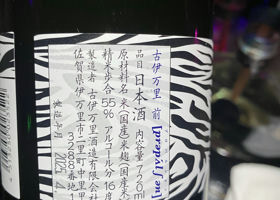 古伊万里 前 [prɛpɛ́ːʃən]
品目 日本酒 内容量 720ml
原材料名 米(国産)米麹(国産米
精米歩合 55% アルコール分 16度
製造者 古伊万里酒造有限会社
佐賀県伊万里市二里町中里甲
3288番地
製造年月